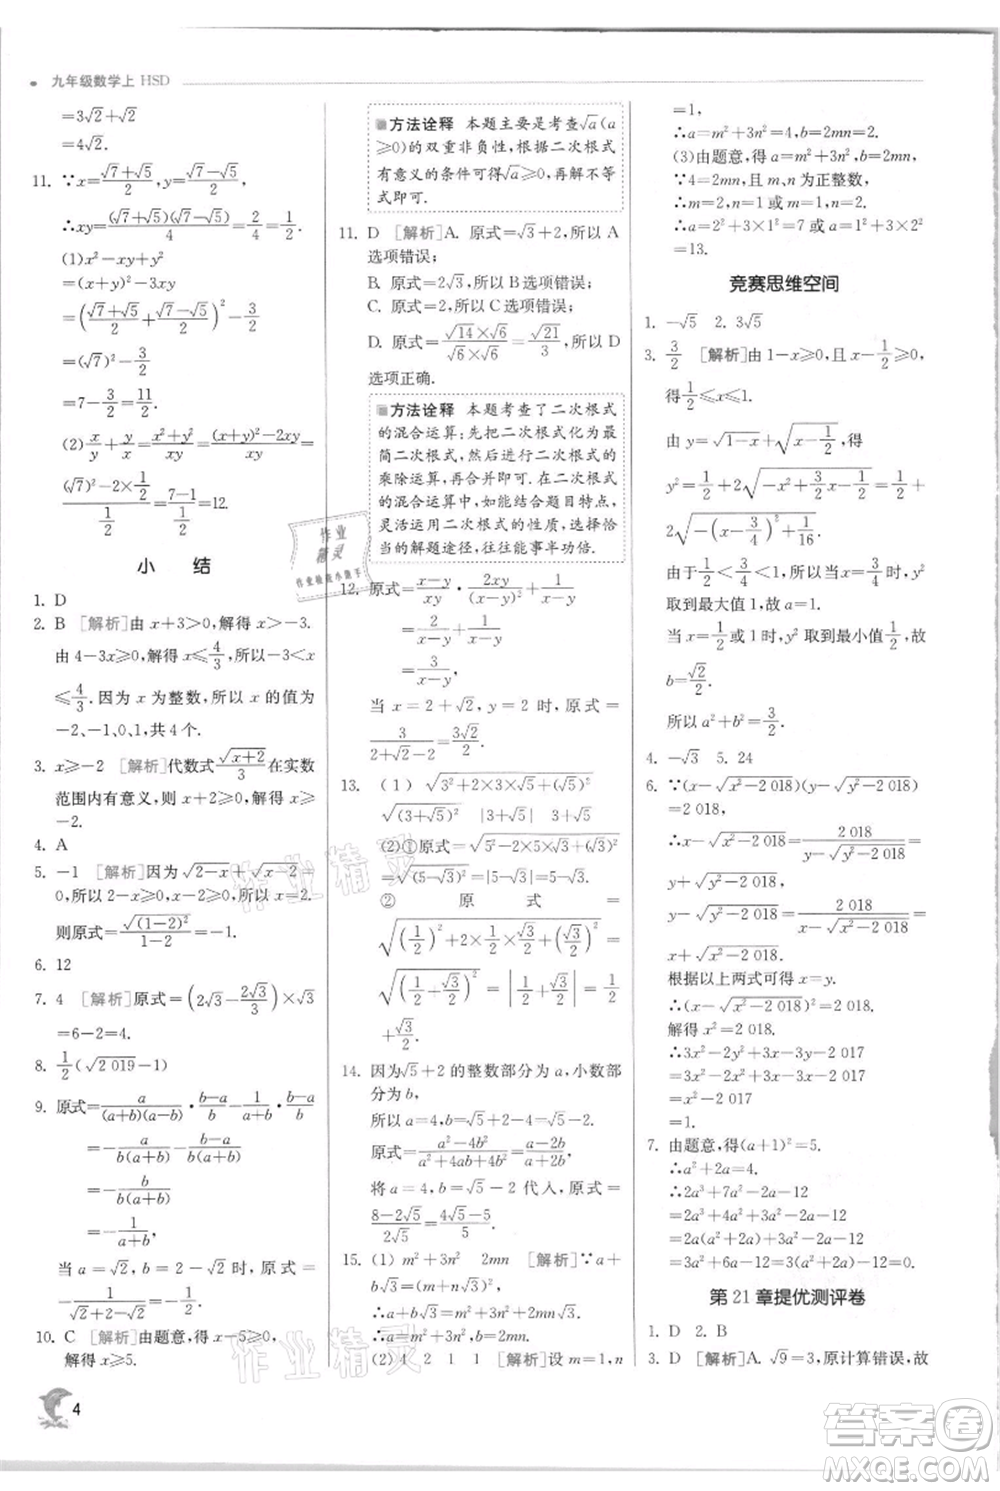 九年级数学上 HSD
=3√2+√2
=4√2.
11. ∵x=(√7+√5)/2,y=(√7-√5)/2,
∴xy=(√7+√5)(√7-√5)/4=2/4=1/2.
(1)x²-xy+y²
=(x+y)²-3xy
=((√7+√5)/2+(√7-√5)/2)²-3/2
=(√7)²-3/2
=7-3/2=11/2.
(2)x/y+y/x=(x²+y²)/xy=((x+y)²-2xy)/xy=
((√7)²-2×1/2)/(1/2)=(7-1)/(1/2)=12.
小 结
1. D
2. B [解析]由 x+3>0,解得 x>-3.
由 4-3x≥0,解得 x≤4/3,所以-3<x
≤4/3.因为 x 为整数,所以 x 的值为
-2、-1、0、1,共 4 个.
3. x≥-2 [解析]代数式√(x+2)/3在实数
范围内有意义,则 x+2≥0,解得 x≥
-2.
4. A
5. -1 [解析]因为√(2-x)与√(x-2)≥
0,所以 2-x≥0,x-2≥0,所以 x=2.
则原式=√((1-2)²)/(1-2)=-1.
6. 12
7. 4 [解析]原式=(2√3-2√3/3)×√3
=6-2=4.
8. 1/2(√2 019-1)
9. 原式=a/((a+b)(a-b))·(b-a)/b+1/(a+b)·(b-a)/(b-a)
=-a/(b(a+b))+1/(a+b)
=-a/(b(a+b))+b/(b(a+b))
当 a=√2,b=2 时,原式=
10. C [解析]由题意,得 x-5≥0,
解得 x≥5.
方法诠释 本题主要是考查√a(a
≥0)的双重非负性,根据二次根式
有意义的条件可得√a≥0,再解不等
式即可.
11. D [解析]A. 原式=√3+2,所以 A
选项错误;
B. 原式=2√3,所以 B 选项错误;
C. 原式=2,所以 C 选项错误;
D. 原式=(√14×√6)/(√6×√6)=√21/3,所以 D
选项正确.
方法诠释 本题考查了二次根式
的混合运算:先把二次根式化为最
简二次根式,然后进行二次根式的
乘除运算,再合并即可.在二次根式
的混合运算中,如能结合题目特点,
灵活运用二次根式的性质,选择恰
当的解题途径,往往能事半功倍.
12. 原式=(x-y)/xy·2xy/(x-y)²+1/(x-y)
=2/(x-y)+1/(x-y)
=3/(x-y).
当 x=2+√2,y=2 时,原式=
3/(2+√2-2)=3√2/2.
13. (1) √(3²+2×3×√5+(√5)²)
√((3+√5)²) |3+√5| 3+√5
② 原 式 =
√((1/2)²+2×1/2×√3/2+(√3/2)²)=
√((1/2+√3/2)²)=|1/2+√3/2|=1/2
+√3/2.
14. 因为√5+2 的整数部分为 a,小数部
分为 b,
所以 a=4,b=√5+2-4=√5-2.
原式=(a²-4b²)/(a²+4ab+4b²)=(a-2b)/(a+2b).
将 a=4,b=√5-2 代入,原式=
(8-2√5)/2√5=(4√5-5)/5.
15. (1) m²+3n² 2mn [解析]∵a+
b√3=(m+n√3)²,
∴a+b√3=m²+3n²+2mn√3.
∴a=m²+3n²,b=2mn.
(2)4 2 1 1 [解析]设 m=1,n
=1,
∴a=m²+3n²=4,b=2mn=2.
(3)由题意,得 a=m²+3n²,b=2mn.
∵4=2mn,且 m、n 为正整数,
∴m=2,n=1 或 m=1,n=2.
∴a=2²+3×1²=7 或 a=1²+3×2²
=13.
竞赛思维空间
1. -√5 2. 3√5
3. 3/2 [解析]由 1-x≥0,且 x-1/2≥0,
得1/2≤x≤1.
由 y=√(1-x)+√(x-1/2),得
y²=1/2+2√(-x²+3/2x-1/2)=1/2+
2√(-(x-3/4)²+1/16).
由于1/2<3/4<1,所以当 x=3/4时,y²
取到最大值 1,故 a=1.
当 x=1/2或 1 时,y² 取到最小值1/2,故
b=√2/2.
所以 a²+b²=3/2.
4. -√3 5. 24
6. ∵(x-√(x²-2 018))(y-√(y²-2 018))
=2 018,
∴x-√(x²-2 018)=2 018/(y-√(y²-2 018))=
y+√(y²-2 018),
y-√(y²-2 018)=2 018/(x-√(x²-2 018))=
x+√(x²-2 018).
根据以上两式可得 x=y.
∴(x-√(x²-2 018))²=2 018.
解得 x²=2 018.
∴3x²-2y²+3x-3y-2 017
=3x²-2x²+3x-3x-2 017
=x²-2 017
=1.
7. 由题意,得(a+1)²=5.
∴a²+2a=4.
∴2a³+7a²-2a-12
=2a³+4a²+3a²-2a-12
=2a(a²+2a)+3a²-2a-12
=3a²+6a-12=3×4-12=0.
第 21 章提优测评卷
1. D 2. B
3. D [解析]A. √9=3,原计算错误,故
4
作业精灵
答案卷
MXQE.COM